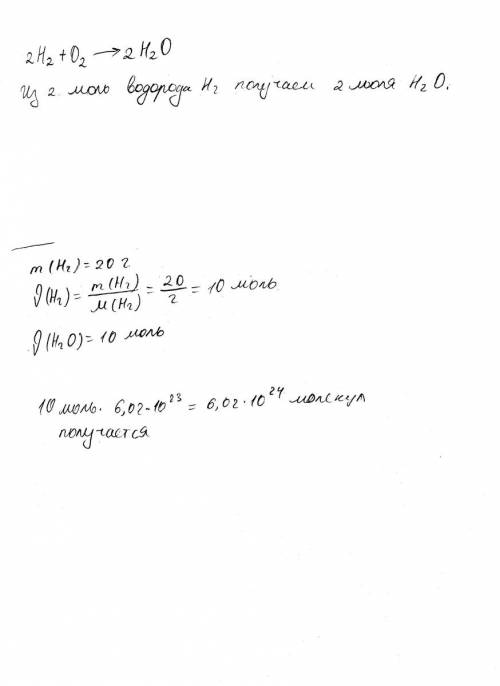 2H₂ + O₂ → 2H₂O
Из 2 моль водорода H₂ получаем 2 моля H₂O.
m(H₂) = 20 г
ν(H₂) = m(H₂)/M(H₂) = 20/2 = 10 моль
ν(H₂O) = 10 моль
10 моль · 6,02 · 10²³ = 6,02 · 10²⁴ молекул
получается